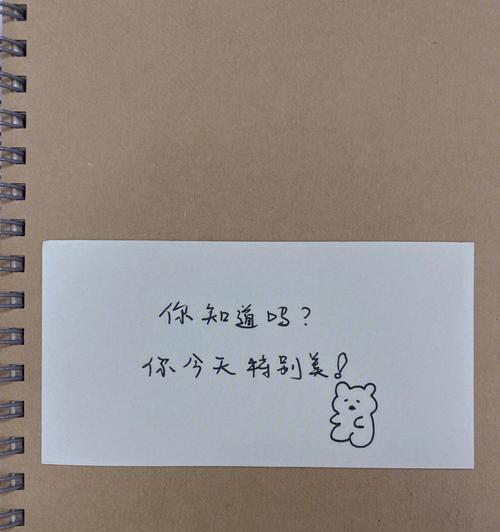 你知道吗？
你今天特别美！